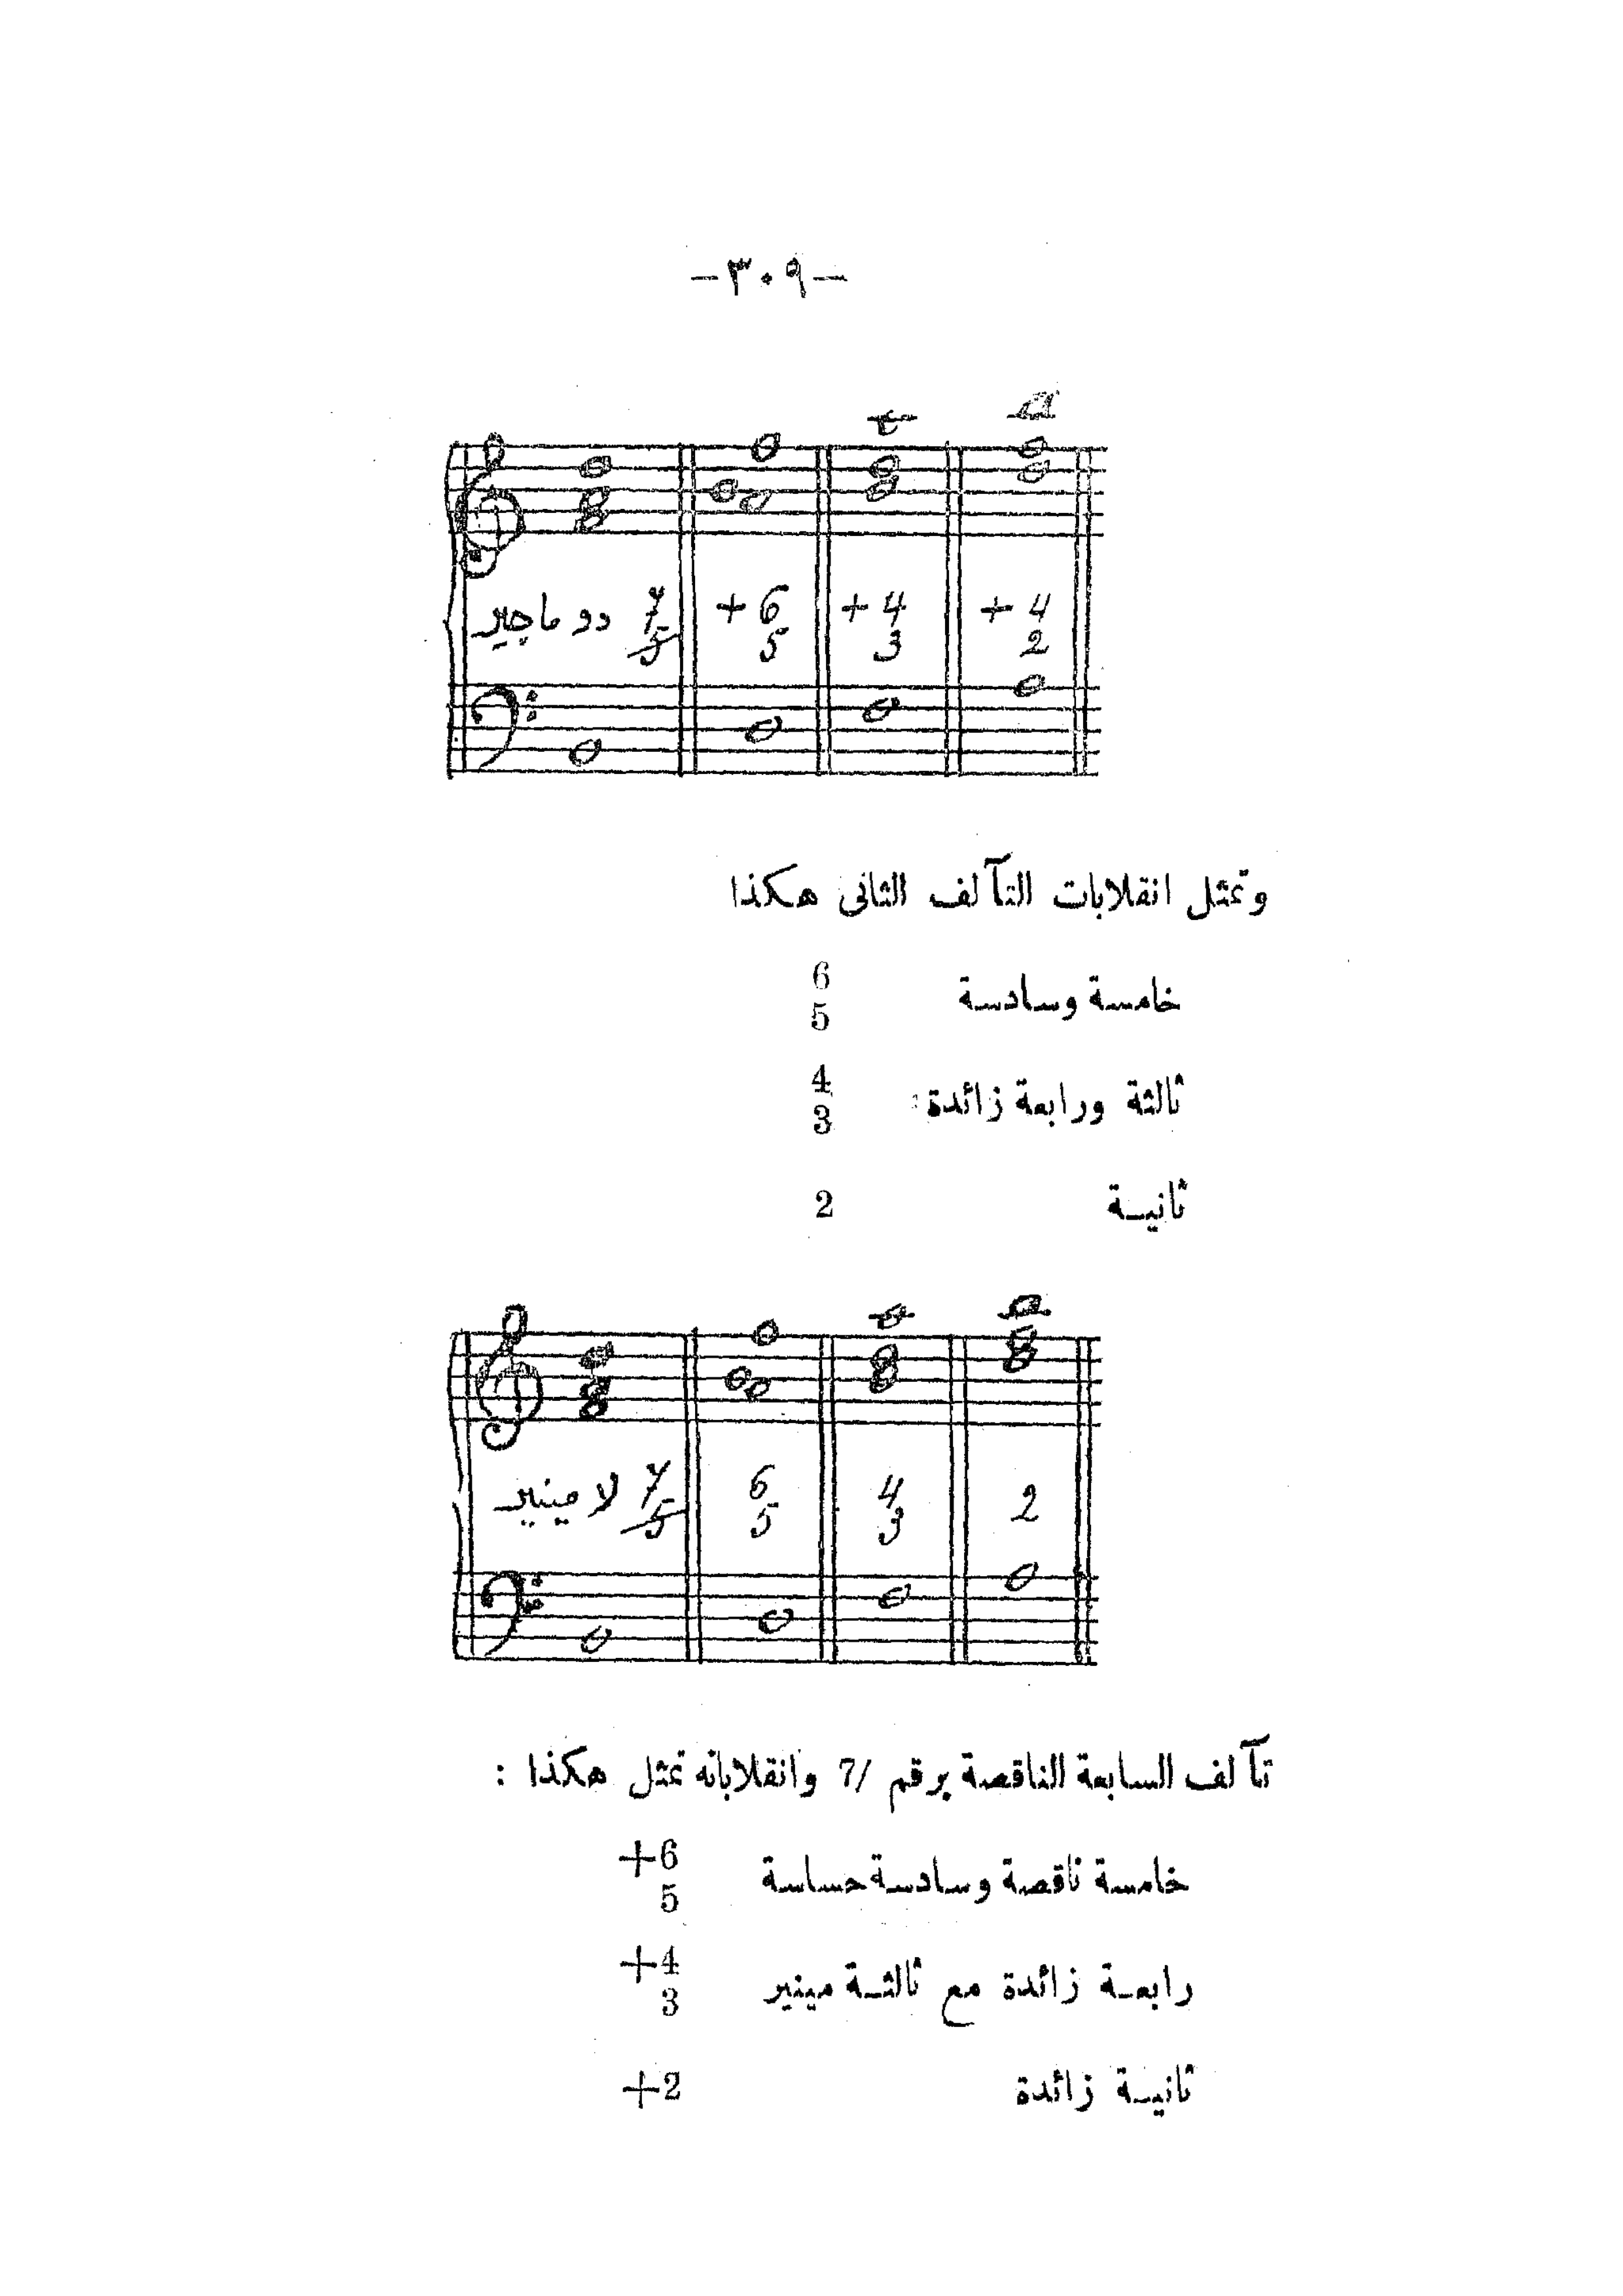 -٣٠٩-
دو ماجير 7 +6 +4 +4
5 5 3 2
وتمثل انقلابات التآلف الثانى هكذا
خامسة وسادسة 6
5
ثالثة ورابعة زائدة: 4
3
ثانيـة 2
لا مينير 7 6 4 2
5 5 3
تآلف السابعة الناقصة برقم /7 وانقلاباته تمثل هكذا :
خامسة ناقصة وسادسة حساسة +6
5
رابعـة زائدة مع ثالثـة مينير +4
3
ثانيـة زائدة +2